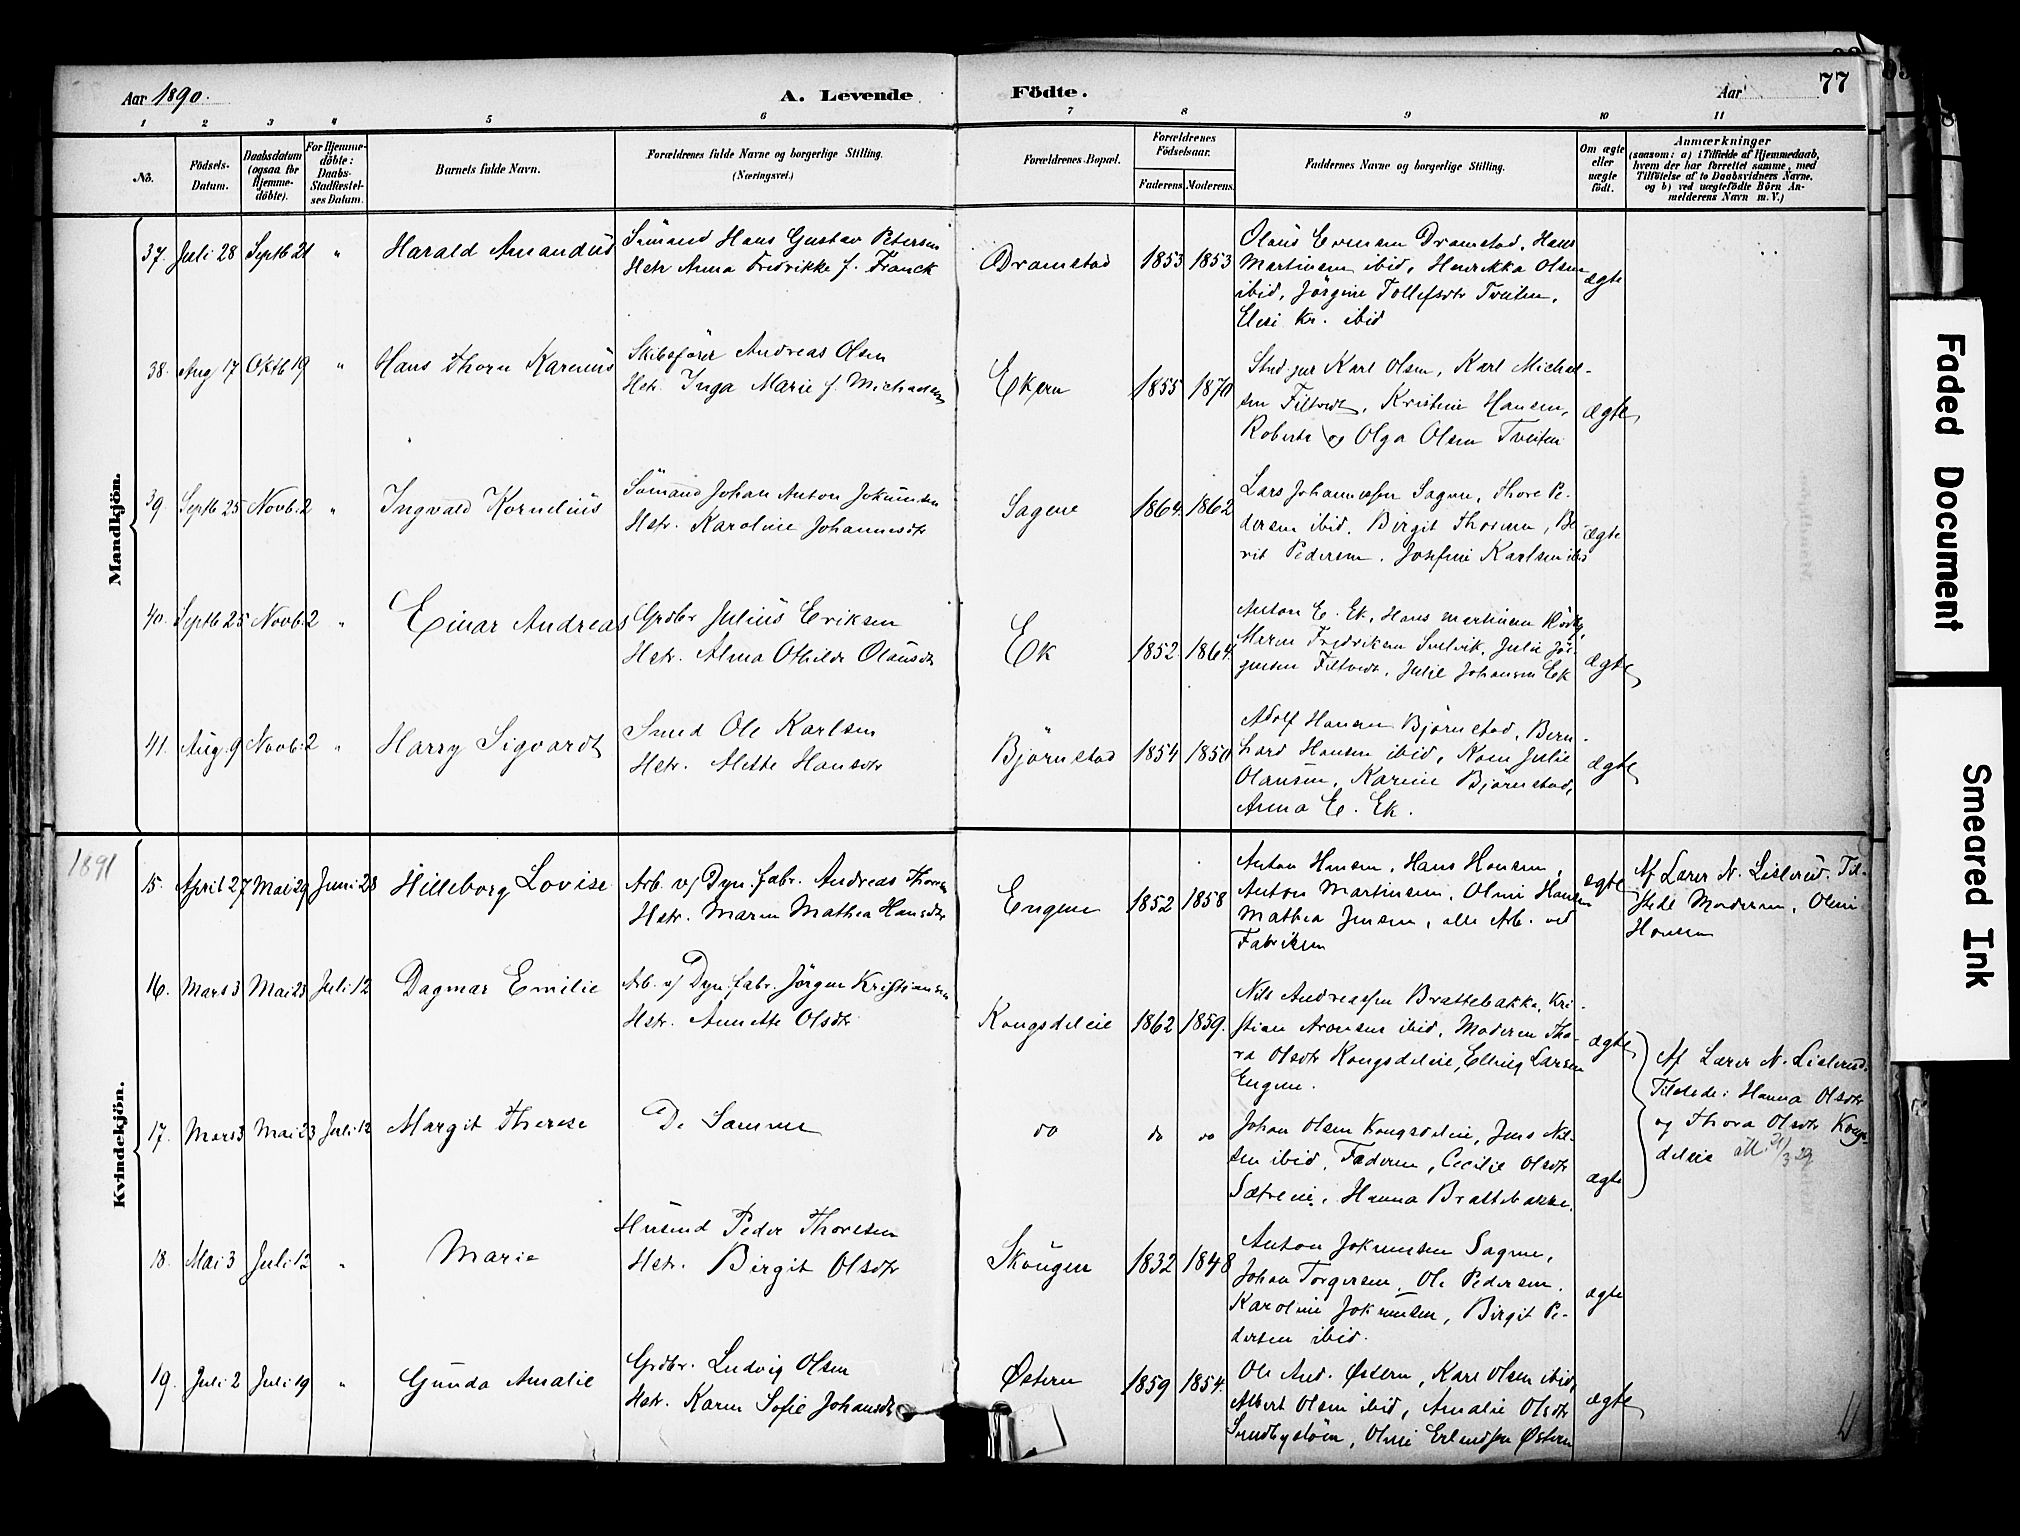 Aar 1890.
A. Levende
Födte.
Aar
77
1 2 3 4 5 6 7 8 9 10 11
No.
Födsels-Datum.
Daabsdatum (ogsaa for Hjemme-döbte).
For Hjemme-döbte: Daabs-Stadfæstel-ses Datum.
Barnets fulde Navn.
Forældrenes fulde Navne og borgerlige Stilling.
(Næringsvei.)
Forældrenes Bopæl.
Forældrenes Födselsaar.
Faderens. Moderens.
Faddernes Navne og borgerlige Stilling.
Om ægte eller uægte födt.
Anmærkninger
(saasom: a) i Tilfælde af Hjemmedaab,
hvem der har forrettet samme, med
Tilföielse af to Daabsvidners Navne.
og b) ved uægtefödte Börn An-
melderens Navn m. V.)
Mandkjön.
37. Juli 28 Septb 21 " Harald Amandus
Sömand Hans Gustav Petersen
Hstr Anna Fredrikke f. Franck
Dramstad 1853 1853
Olaus Evensen Dramstad, Hans
Martinsen ibid, Henrikka Olsen
ibid, Jörgine Tollefsdtr Tveiten,
Elesi Kr. ibid
ægte
38. Aug 17 Oktb 19 " Hans Thorn Karenius
Skibsförer Andreas Olsen
Hstr. Inga Marie f. Michaelsen
Ekern 1855 1870
Stud jur Karl Olsen, Karl Michael-
sen Filtvedt, Kristine Hansen,
Roberta og Olga Olsen Tveiten
ægte
39 Septb 25 Novb. 2 " Ingvald Kornelius
Sömand Johan Anton Jokumsen
Hstr. Karoline Johannesdtr
Sagene 1864. 1862
Lars Johannessen Sagene, Thore Pe-
dersen ibid. Birgit Thoresen, Be
rit Pedersen. Josefine Karlsen ibid
ægte
40. Septb 25 Novb. 2 " Einar Andreas
Grdbr Julius Eriksen
Hstr. Alma Othilde Olausdtr
Ek 1852 1864.
Anton E. Ek, Hans Martinsen
Maren Fredriksen Svelvik, Julie Jör-
gensen Filtvedt, Julie Johansen Ek
ægte
41. Aug. 9 Novb. 2 " Harry Sigvardt
Smed Ole Karlsen
Hstr. Mette Hansdtr
Björnstad 1854 1850
Adolf Hansen Björnstad, Bern-
hard Hansen ibid, Karen Julie
Olausen, Karine Björnstad,
Anna E. Ek.
ægte
1891
Kvindekjön.
15. April 27 Mai 29 Juni 28 Hilleborg Lovise
Arb. v/ Dyn. fabr. Andreas Thoresen
Hstr. Maren Mathea Hansdtr
Engene 1852 1858
Anton Hansen, Hans Hansen,
Anton Martinsen, Oline Hansen
Mathea Jensen, alle Arb. ved
Fabriken
ægte
Af Lærer N. Lislerud. Til-
stede Moderen, Oline
Hansen
16. Mars 3 Mai 23 Juli 12 Dagmar Emilie
Arb. v/ Dyn. fabr. Jörgen Kristiansen
Hstr. Annette Olsdtr
Kongsdeleie 1862 1859.
Nils Andreassen Brattebakke, Kri-
stian Aronsen ibid, Moderen Tho-
ra Olsdtr Kongsdeleie, Elling Larsen
Engene.
ægte
Af Lærer N. Lislerud.
Tilstede: Hanna Olsdtr
og Thora Olsdtr Kongs-
deleie att. 21/3 29
17. Mars 3 Mai 23 Juli 12 Margit Therese
De Samme
do do do
Johan Olsen Kongsdeleie, Jens Nil-
sen ibid, Faderen, Cecilie Olsdtr
Sætreeie, Hanna Brattebakke.
ægte
18. Mai 3 Juli 12 " Marie
Husmd Peder Thoresen
Hstr. Birgit Olsdtr
Skougen 1832 1848
Anton Jokumsen Sagene,
Johan Torgersen, Ole Pedersen.
Karoline Jokumsen, Birgit Pe-
dersen ibid.
ægte
19. Juli 2 Juli 19 " Gunda Amalie
Grdbr. Ludvig Olsen
Hstr. Karen Sofie Johansdtr
Østern 1859 1854.
Ole And. Østern, Karl Olsen ibid,
Albert Olsen ibid, Amalie Olsdtr
Sundbystöen, Oline Erlandsen Østern
ægte
Faded Document
Smeared Ink